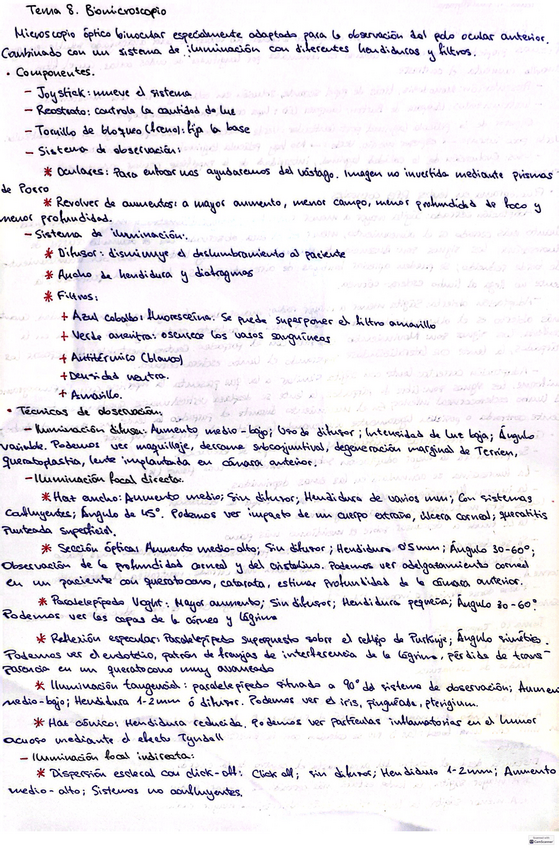 Tema 8. Biomicroscopio
Microscopio óptico binocular especialmente adaptado para la observación del polo ocular anterior.
Combinado con un sistema de iluminación con diferentes hendiduras y filtros.
• Componentes.
- Joystick: mueve el sistema
- Reostrato: controla la cantidad de luz
- Tornillo de bloqueo (freno): fija la base
- Sistema de observación:
* Oculares: Para enfocar nos ayudaremos del vástago. Imagen no invertida mediante prismas
de Porro
* Revolver de aumentos: a mayor aumento, menor campo, menor profundidad de foco y
menor profundidad.
- Sistema de iluminación:
* Difusor: disminuye el deslumbramiento al paciente
* Ancho de hendidura y diafragmas
* Filtros:
+ Azul cobalto: fluoresceína. Se puede superponer el filtro amarillo
+ Verde aneritra: oscurece los vasos sanguíneos
+ Antitérmico (blanco)
+ Densidad neutra.
+ Amarillo.
• Técnicas de observación:
- Iluminación difusa: Aumento medio-bajo; Uso de difusor; Intensidad de luz baja; Ángulo
variable. Podemos ver maquillaje, derrame subconjuntival, degeneración marginal de Terrien,
queratoplastia, lente implantada en cámara anterior.
- Iluminación focal directa:
* Haz ancho: Aumento medio; Sin difusor; Hendidura de varios mm; Con sistemas
confluyentes; Ángulo de 45°. Podemos ver impacto de un cuerpo extraño, úlcera corneal; queratitis
punteada superficial.
* Sección óptica: Aumento medio-alto; Sin difusor; Hendidura 0'5mm; Ángulo 30-60°;
Observación de la profundidad corneal y del cristalino. Podemos ver adelgazamiento corneal
en un paciente con queratocono, catarata, estimar profundidad de la cámara anterior.
* Paralelepípedo Voght: Mayor aumento; Sin difusor; Hendidura pequeña; Ángulo 30-60°
Podemos ver las capas de la córnea y lágrima
* Reflexión especular: Paralelepípedo superpuesto sobre el reflejo de Purkinje; Ángulo simétrico.
Podemos ver el endotelio, patrón de franjas de interferencia de la lágrima, pérdida de trans-
parencia en un queratocono muy avanzado
* Iluminación tangencial: paralelepípedo situado a 90° del sistema de observación; Aumento
medio-bajo; Hendidura 1-2mm ó difusor. Podemos ver el iris, pinguécula, pterigium.
* Haz cónico: Hendidura reducida. Podemos ver partículas inflamatorias en el humor
acuoso mediante el efecto Tyndall
- Iluminación focal indirecta:
* Dispersión escleral con click-off: Click off; sin difusor; Hendidura 1-2mm; Aumento
medio-alto; Sistemas no confluyentes.
CamScanner